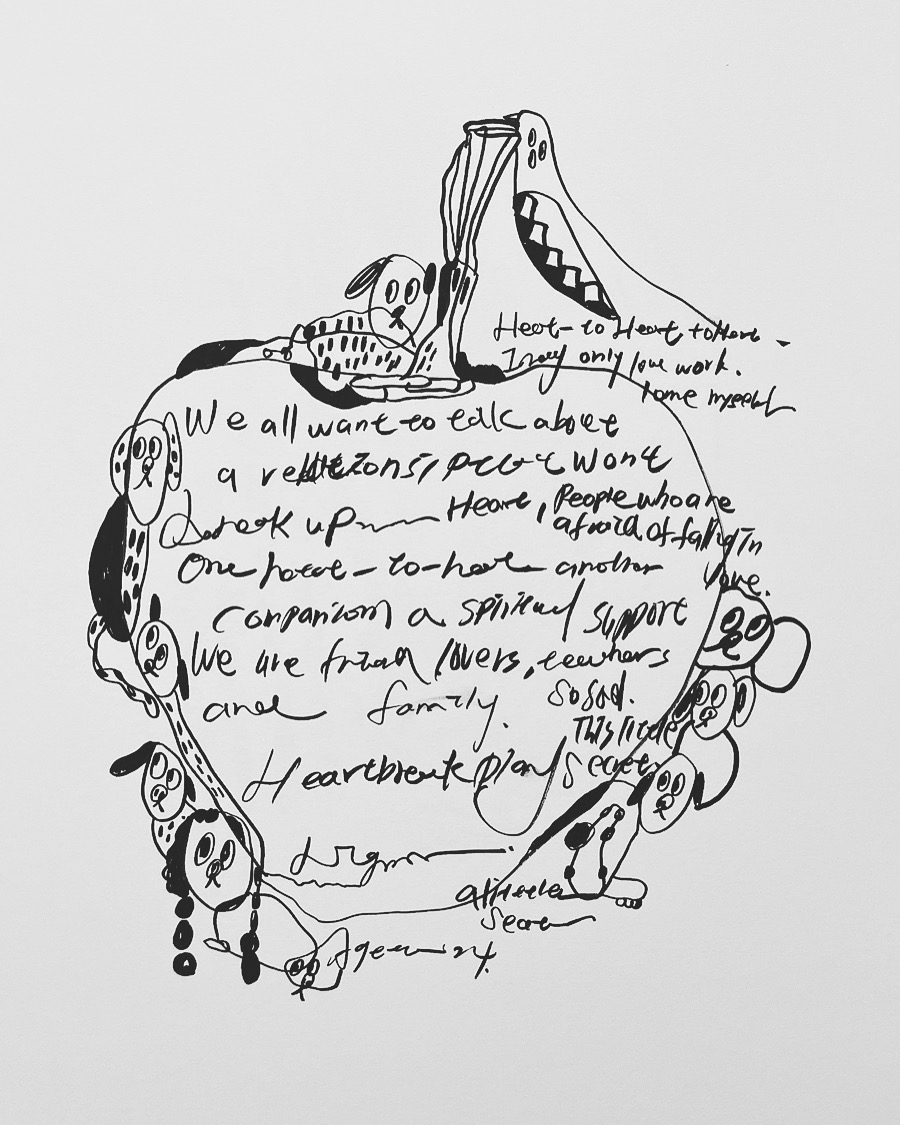 Heart-to Heart to Heart
I only love work.
myself
We all want to talk about
a won't
break up Heart, People who are
afraid of falling In
One heart-to-heart another
Love.
companion a spiritual support
We are friend lovers, teachers
and family. So sad.
This little
Heartbreak Play Secret
a little
Secret
Age 24.